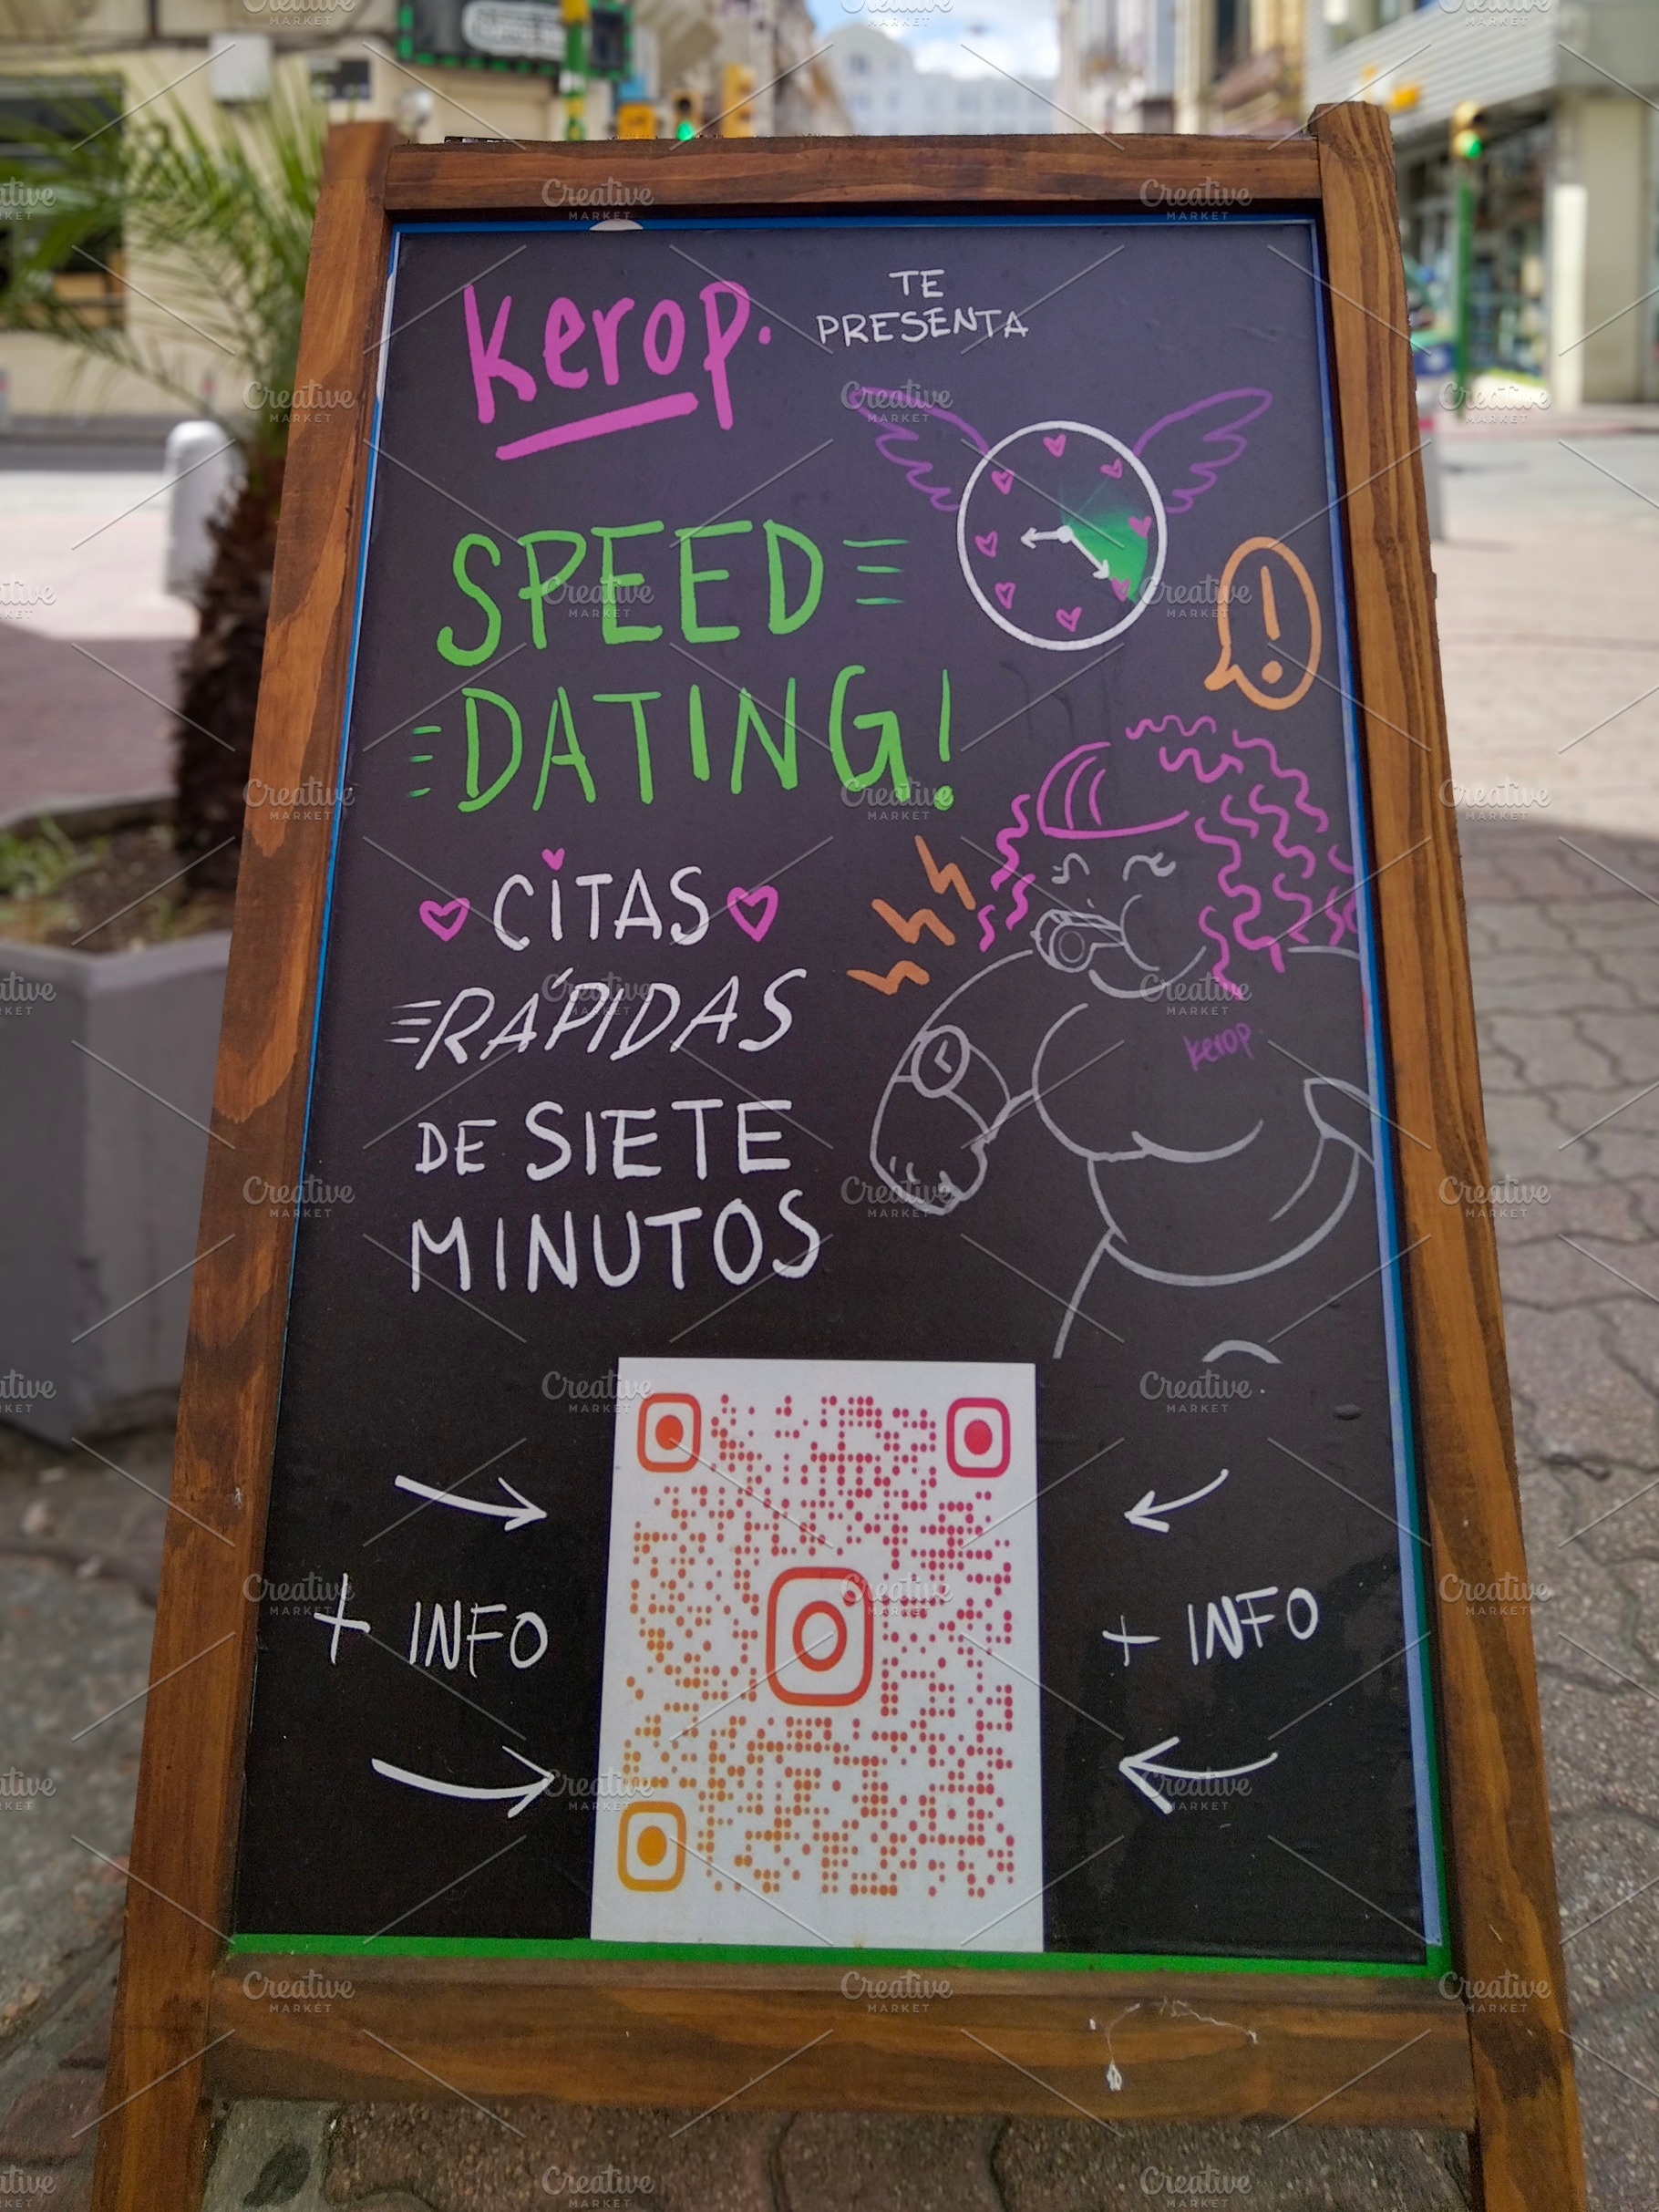 kerop.
TE
PRESENTA
SPEED
DATING!
CITAS
RÁPIDAS
DE SIETE
MINUTOS
kerop.
+ INFO
+ INFO
Creative
MARKET